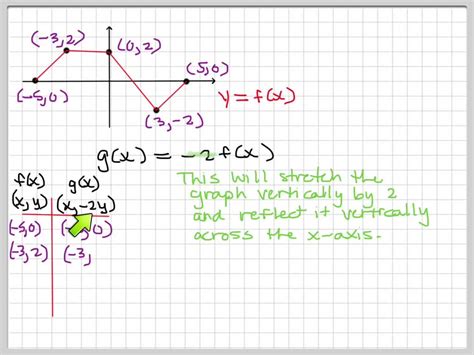 (-3,2)
(0,2)
(5,0)
(-5,0)
y=f(x)
(3,-2)
g(x) = -2f(x)
This will stretch the
graph vertically by 2
and reflect it vertically
across the x-axis.
f(x) g(x)
(x,y) (x,-2y)
(-5,0) 0)
(-3,2) (-3,